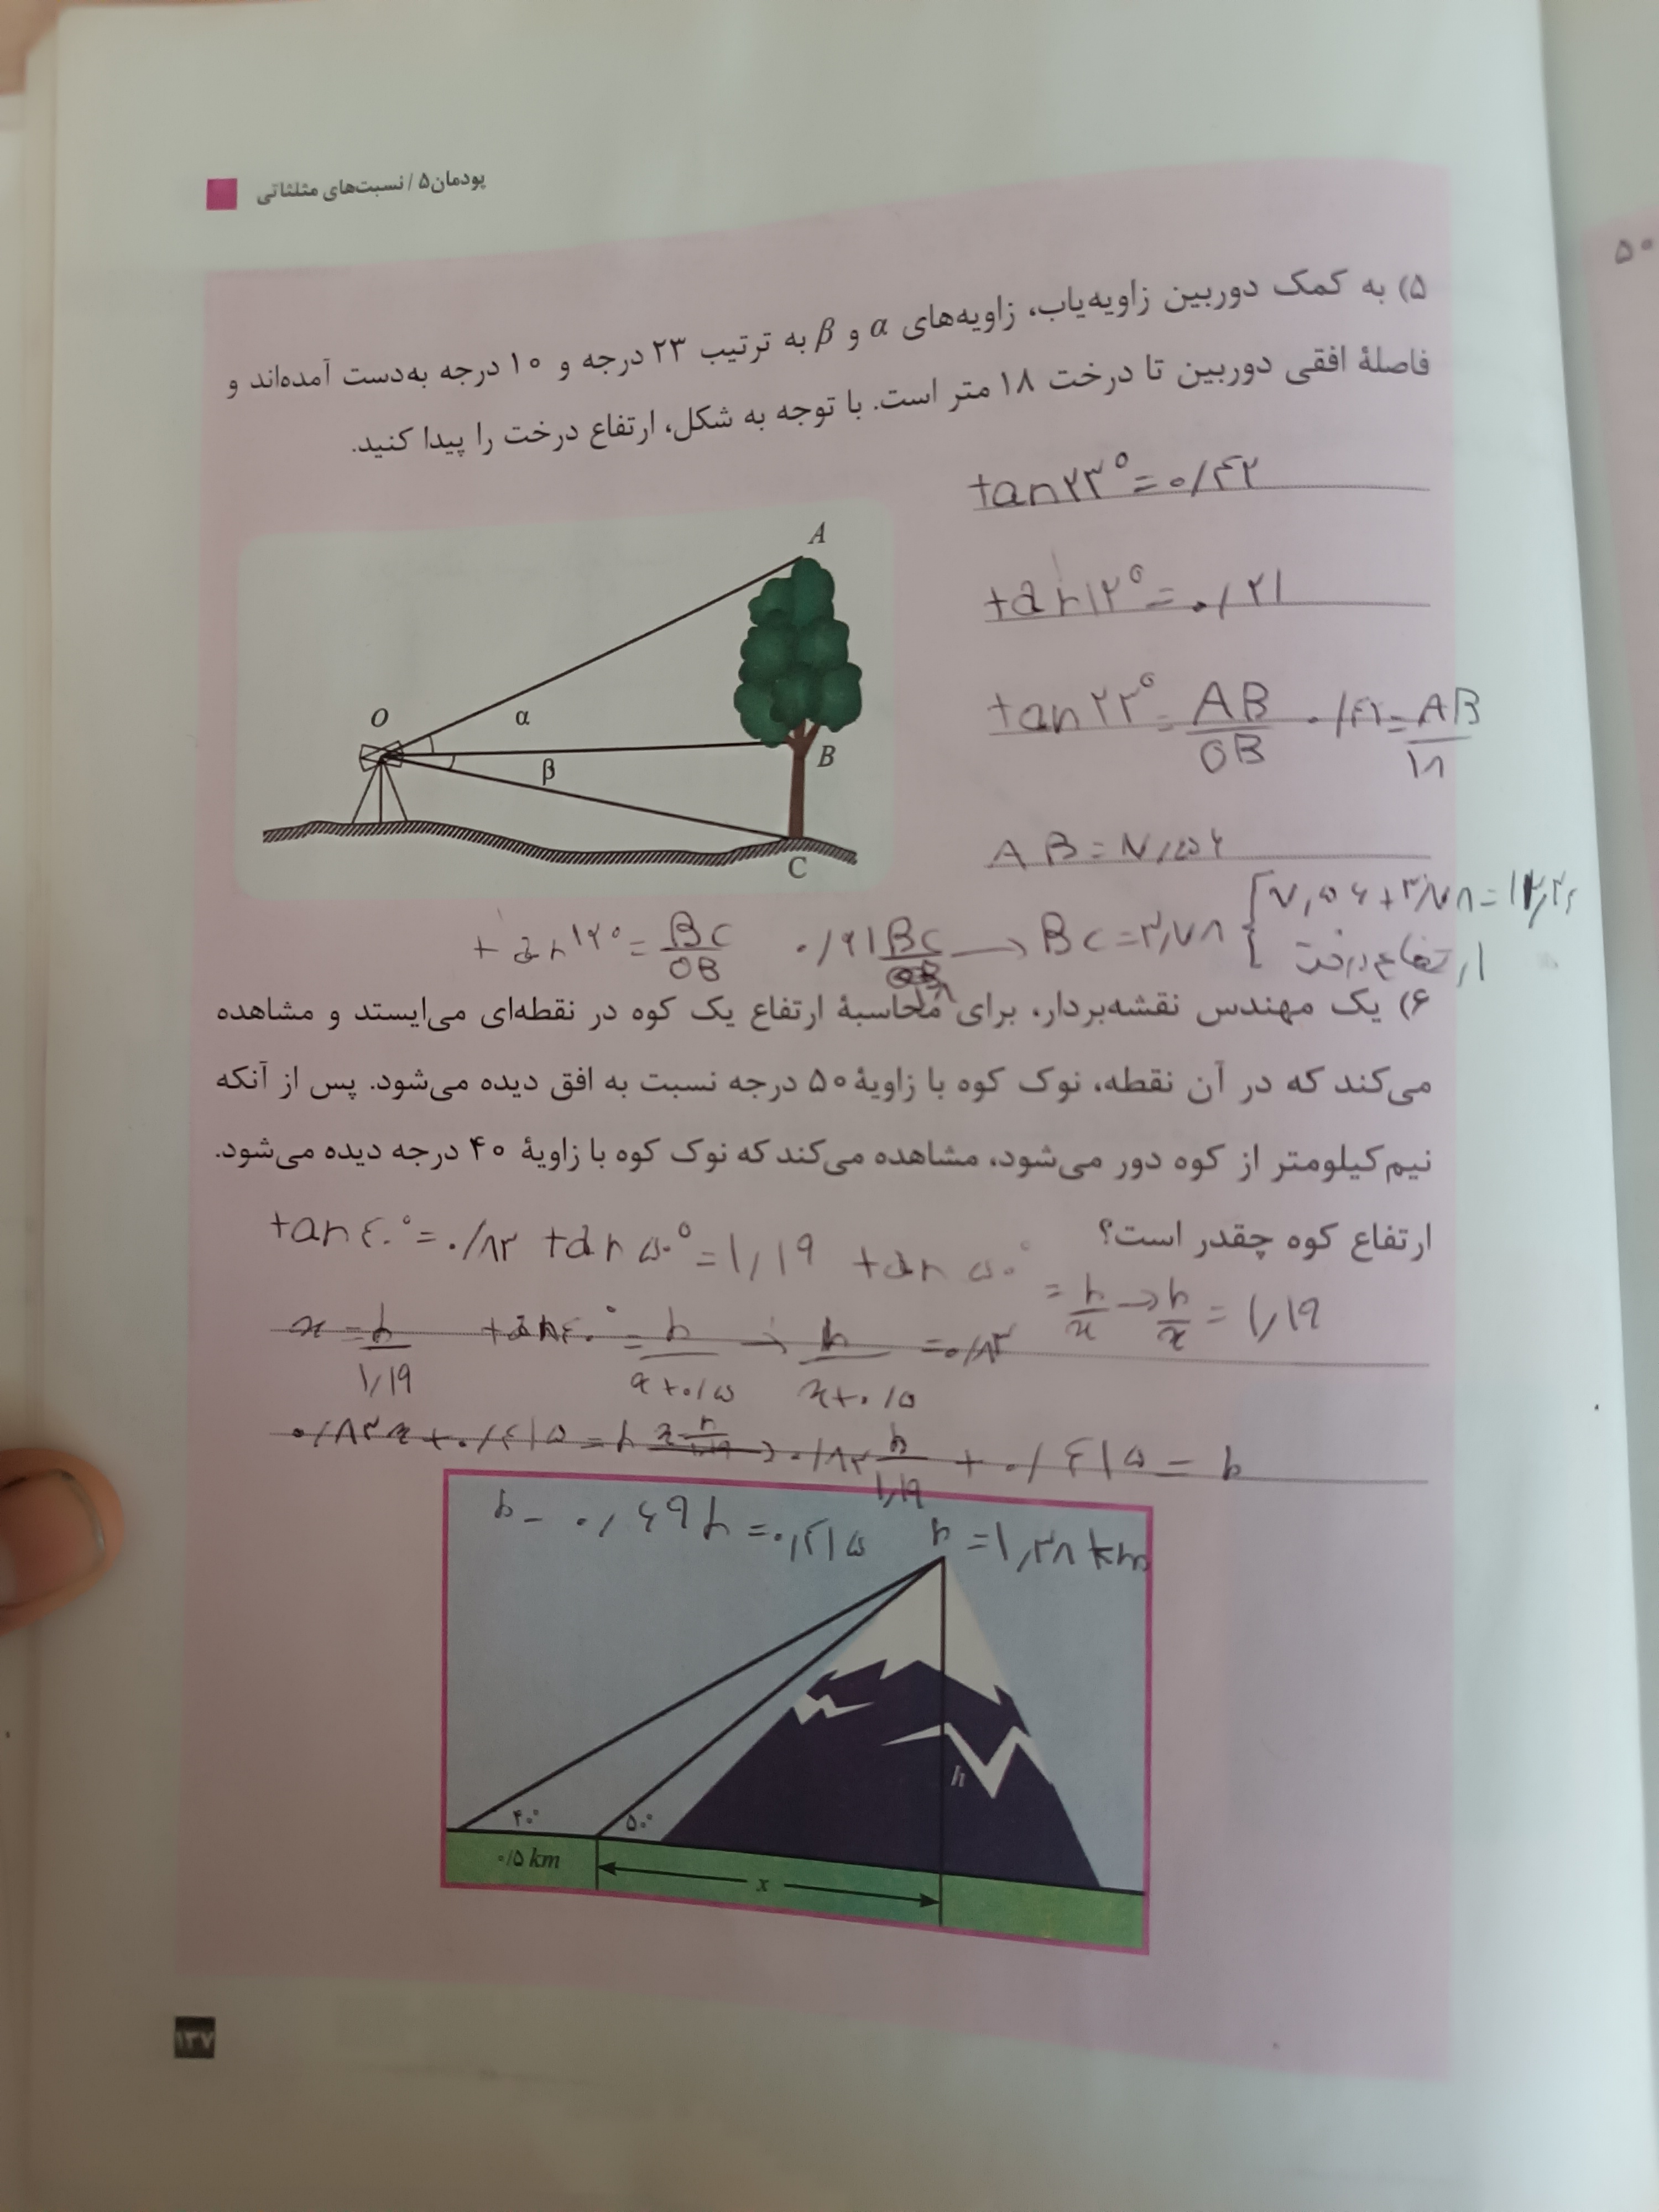 پودمان۵ / نسبت‌های مثلثاتی
۵۰
۵) به کمک دوربین زاویه‌یاب، زاویه‌های α و β به ترتیب ۲۳ درجه و ۱۰ درجه به‌دست آمده‌اند و
فاصلهٔ افقی دوربین تا درخت ۱۸ متر است. با توجه به شکل، ارتفاع درخت را پیدا کنید.
tan۲۳° = ۰/۴۲
tan۱۲° = ۰/۲۱
tan۲۳° = AB/OB ۰/۴۲ = AB/۱۸
AB = ۷/۵۶
A
O
α
β
B
C
tan۱۲° = BC/OB ۰/۲۱ BC/۱۸ → BC = ۳/۷۸ { ۷/۵۶ + ۳/۷۸ =
ارتفاع درخت
۶) یک مهندس نقشه‌بردار، برای محاسبهٔ ارتفاع یک کوه در نقطه‌ای می‌ایستد و مشاهده
می‌کند که در آن نقطه، نوک کوه با زاویهٔ ۵۰ درجه نسبت به افق دیده می‌شود. پس از آنکه
نیم کیلومتر از کوه دور می‌شود، مشاهده می‌کند که نوک کوه با زاویهٔ ۴۰ درجه دیده می‌شود.
ارتفاع کوه چقدر است؟
tan ۴۰° = ۰/۸۳ tan ۵۰° = ۱/۱۹ tan ۵۰° = h/x → h/x = ۱/۱۹
x = h/۱/۱۹ tan ۴۰° = h/x+۰/۵ → h/x+۰/۵ = ۰/۸۳
۰/۸۳x + ۰/۴۱۵ = h ۰/۸۳ h/۱/۱۹ + ۰/۴۱۵ = h
h - ۰/۶۹h = ۰/۴۱۵ h = ۱/۳۸ km
h
۴۰°
۵۰°
۰/۵ km
x
۱۳۷